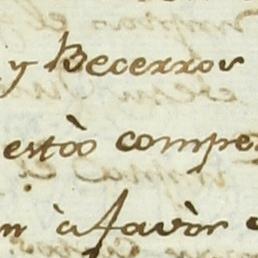 y Becerros
estòo compe
n à favòr